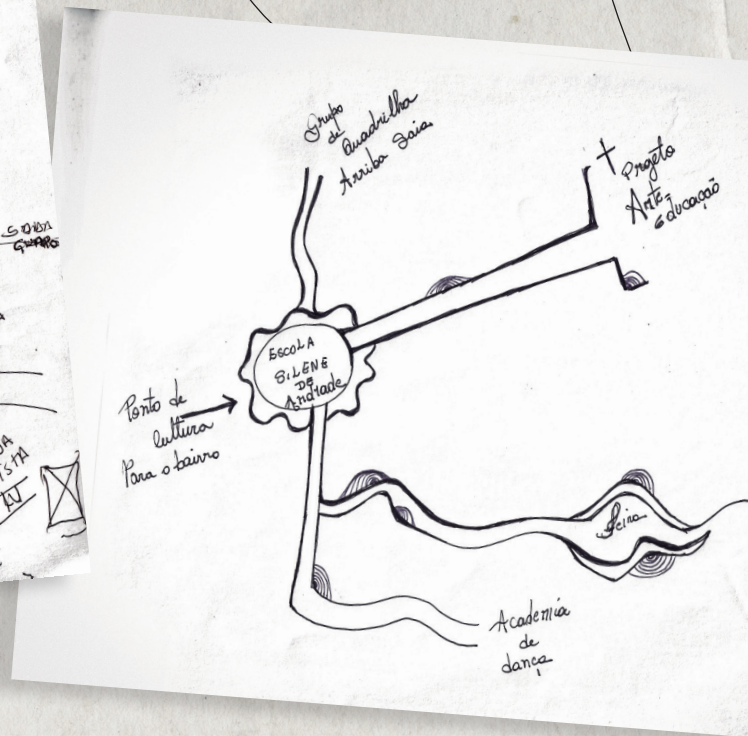 Grupo
de
Quadrilha
Arriba Saia
+ Projeto
Arte-
educação
ESCOLA
SILENE
DE
Andrade
Ponto de
Cultura
Para o bairro
Feira
Academia
de
dança